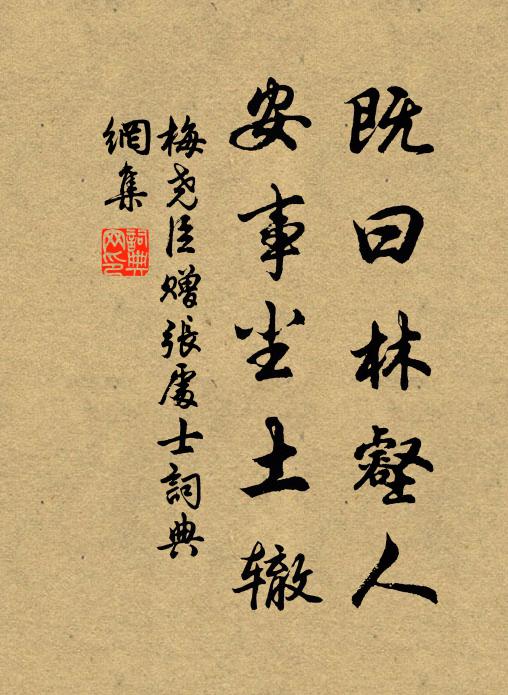 既曰林壑人
安事尘土辙
梅尧臣赠張處士詞典
網集
詞典
网印